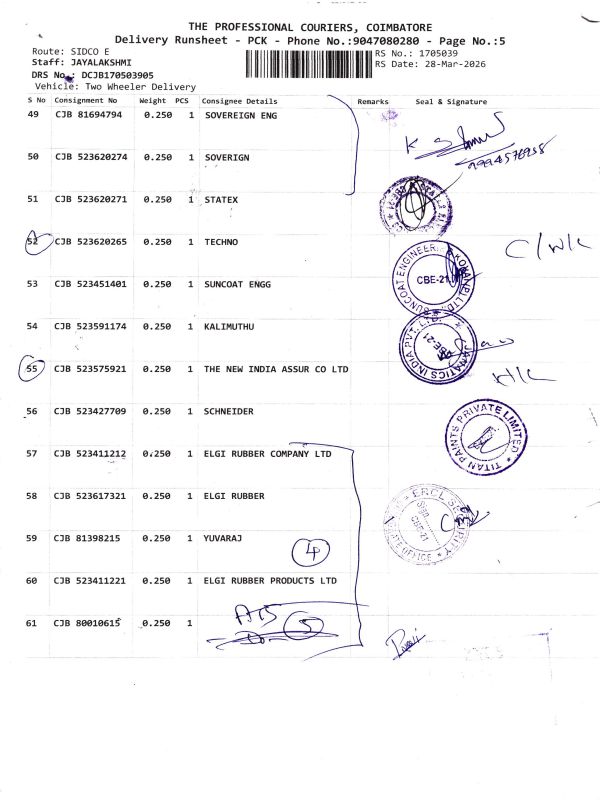 THE PROFESSIONAL COURIERS, COIMBATORE
Delivery Runsheet - PCK - Phone No.:9047080280 - Page No.:5
Route: SIDCO E
RS No.: 1705039
Staff: JAYALAKSHMI
RS Date: 28-Mar-2026
DRS No.: DCJB170503905
Vehicle: Two Wheeler Delivery
S No Consignment No Weight PCS Consignee Details Remarks Seal & Signature
49 CJB 81694794 0.250 1 SOVEREIGN ENG
50 CJB 523620274 0.250 1 SOVERIGN
9994576958
51 CJB 523620271 0.250 1 STATEX
52 CJB 523620265 0.250 1 TECHNO
SUNCOAT ENGINEER
CBE-21
53 CJB 523451401 0.250 1 SUNCOAT ENGG
54 CJB 523591174 0.250 1 KALIMUTHU
JANATICS INDIA PVT. LTD.
CBE-21
55 CJB 523575921 0.250 1 THE NEW INDIA ASSUR CO LTD
56 CJB 523427709 0.250 1 SCHNEIDER
TITAN PAINTS PRIVATE LIMITED
57 CJB 523411212 0.250 1 ELGI RUBBER COMPANY LTD
58 CJB 523617321 0.250 1 ELGI RUBBER
ERCL SECURITY
CBE-21
59 CJB 81398215 0.250 1 YUVARAJ
4
60 CJB 523411221 0.250 1 ELGI RUBBER PRODUCTS LTD
61 CJB 80010615 0.250 1
5